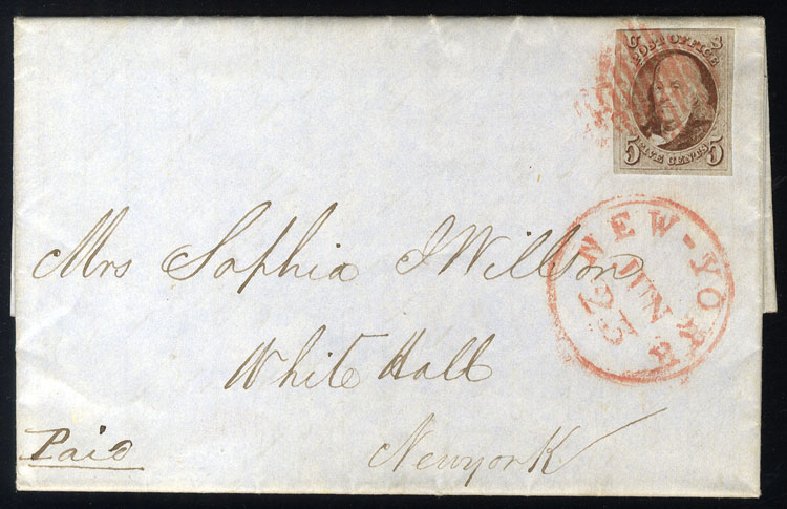 U S
POST OFFICE
5 FIVE CENTS 5
NEW-YORK
JUN
25
Mrs Sophia J Willson
White Hall
Newyork
Paid